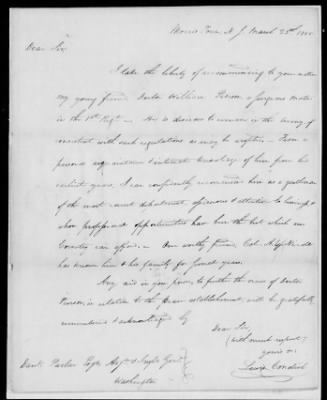 Morris Town N. J. March 23d 18
Dear Sir,
I take the liberty of recommending to you
my young friend Doctor William Pierson a Surgeons mate
in the 1st Regt. He is desirous to remain in the army, if
consistent with such regulations as may be adopted. From a
personal acquaintance & intimate knowledge of him from his
earliest years, I can confidently recommend him as a gentleman
of the most correct deportment, &
whose professional opportunities have been the best which our
Country can afford. Our worthy friend, Col.
has known him & his family for years
Any aid in your power to further the views of Doctor
Pierson in relation to the peace establishment will be gratefully
remembered & acknowledged by
Dear Sir,
(with much respect)
yours &c
Lewis Condict
Danl. Parker Esqr. Adjt. & Inspr. Genl.
Washington